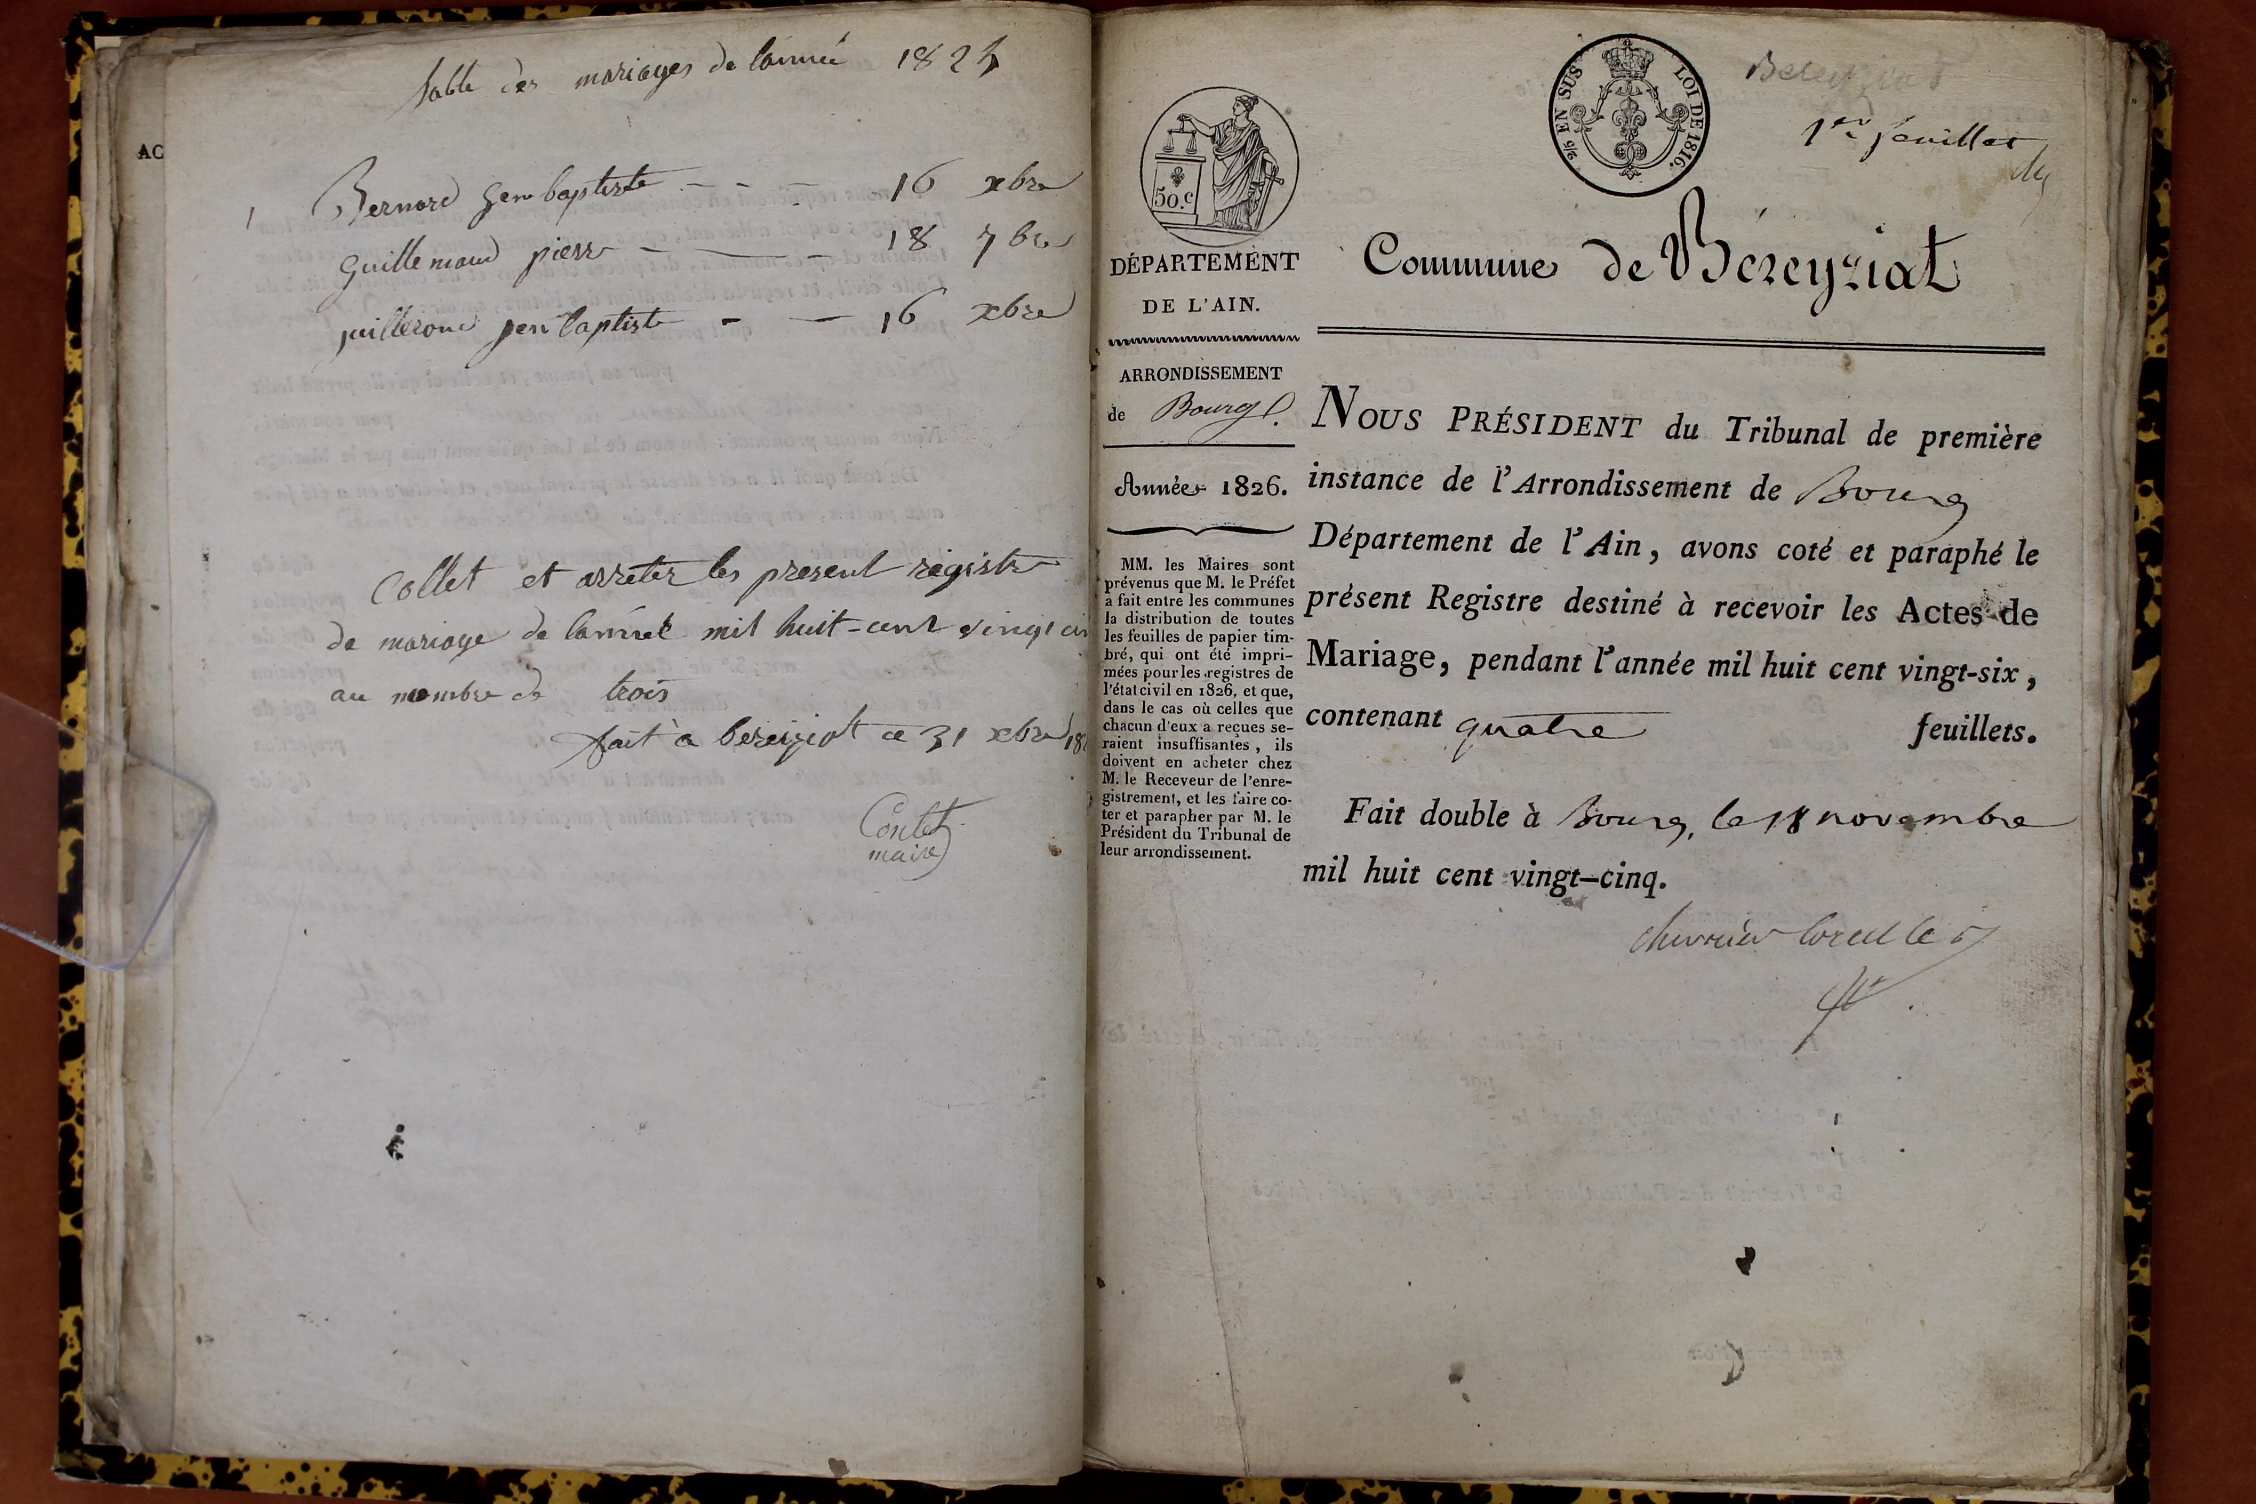 AC
table des mariages de lannéé 1825
1 Bernard Jean baptiste - - - 16 xbre
Guillemaud pierre - - - 18 7bre
puillerond jean baptiste - - 16 xbre
Collet et arreter les present registre
de mariage de lannéé mil huit-cent vingt cin
au nombre de trois
fait à bereiziat ce 31 xbre 182
Contet
maire
2/5 EN SUS LOI DE 1816.
Bereyziat
1er feuillet
50.c
DÉPARTEMENT
DE L'AIN.
ARRONDISSEMENT
de Bourg.
Année 1826.
MM. les Maires sont
prévenus que M. le Préfet
a fait entre les communes
la distribution de toutes
les feuilles de papier tim-
bré, qui ont été impri-
mées pour les registres de
l'état civil en 1826, et que,
dans le cas où celles que
chacun d'eux a reçues se-
raient insuffisantes, ils
doivent en acheter chez
M. le Receveur de l'enre-
gistrement, et les faire co-
ter et parapher par M. le
Président du Tribunal de
leur arrondissement.
Commune de Béreyziat
NOUS PRÉSIDENT du Tribunal de première
instance de l'Arrondissement de Bourg
Département de l'Ain, avons coté et paraphé le
présent Registre destiné à recevoir les Actes de
Mariage, pendant l'année mil huit cent vingt-six,
contenant quatre feuillets.
Fait double à Bourg, le 18 novembre
mil huit cent vingt-cinq.